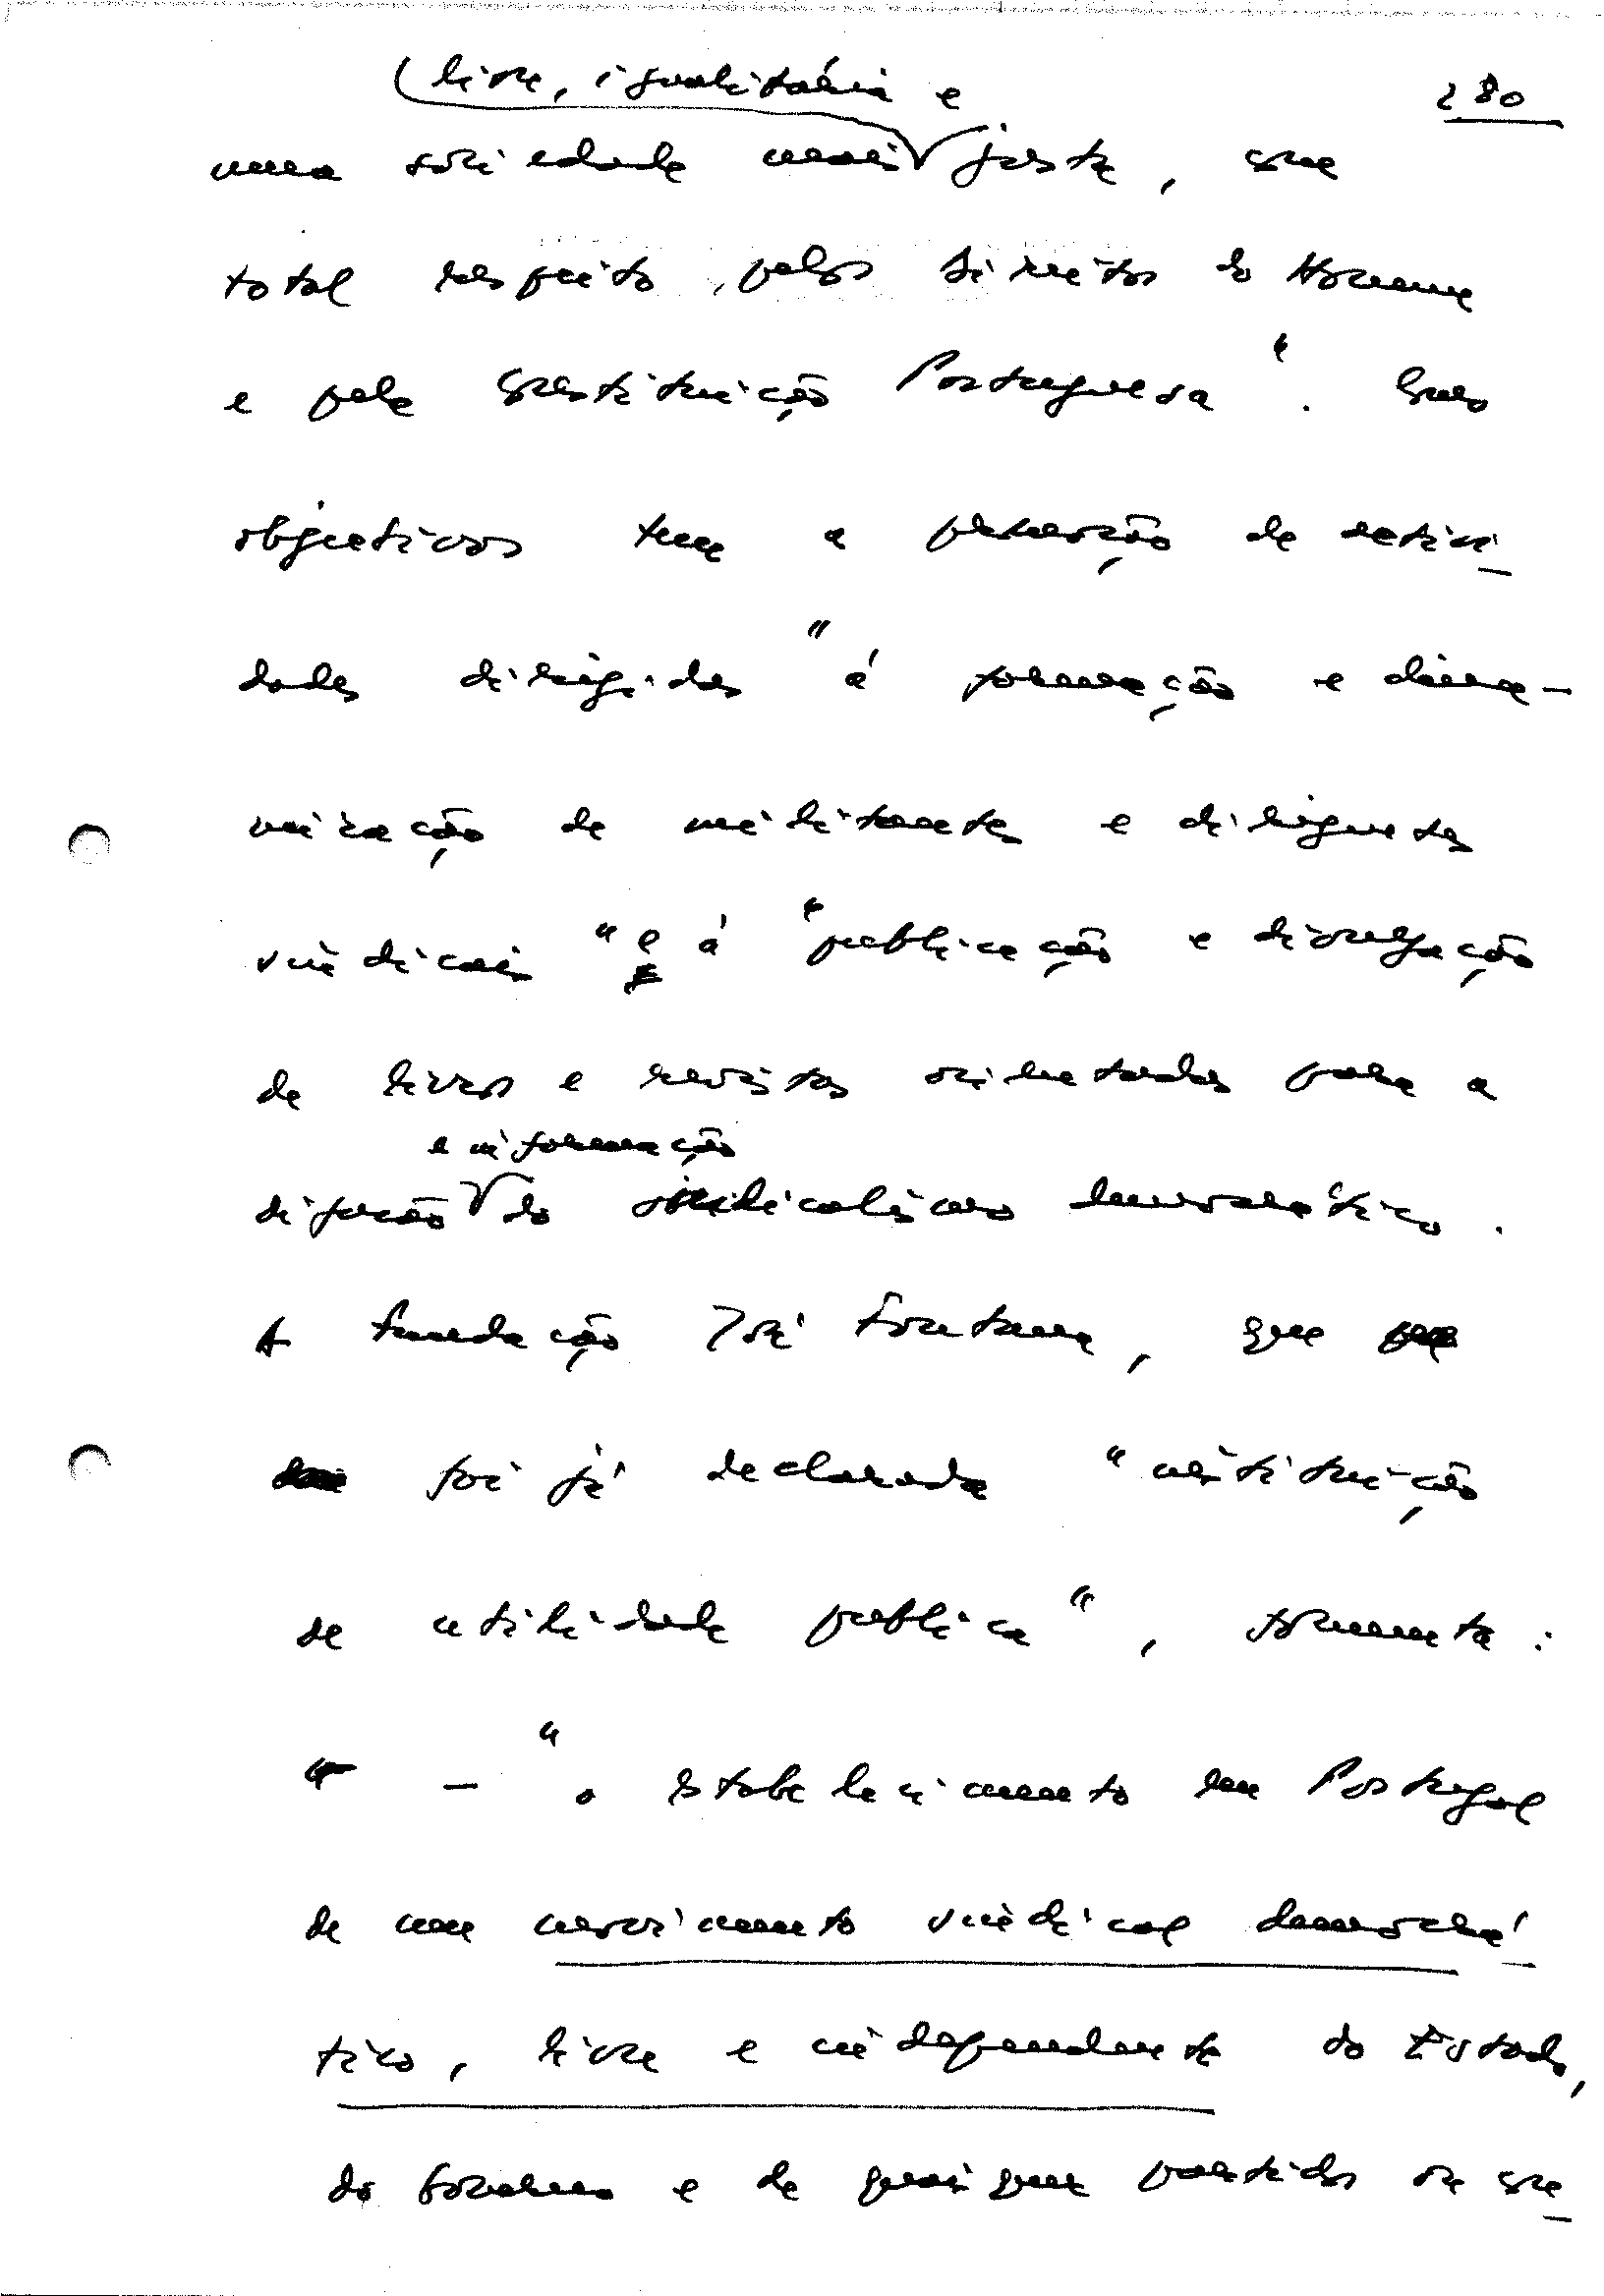 livre, igualitária e
280
uma sociedade mais justa, com
total respeito pelos direitos do Homem
e pela Constituição Portuguesa". Como
objectivos tem a promoção de activi-
dades dirigidas "à formação e dina-
mização de militantes e dirigentes
sindicais" e à "publicação e divulgação
de livros e revistas orientadas para a
e informação
difusão do sindicalismo democrático.
A Fundação José Fontana, que
foi já declarada "instituição
de utilidade pública", fomenta:
- "o estabelecimento em Portugal
de um movimento sindical democrá-
tico, livre e independente do Estado,
do Governo e de quaisquer partidos ou con-